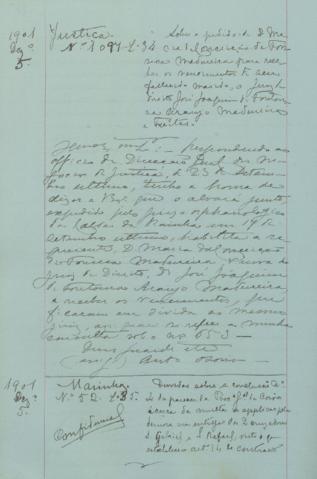 1901
Dez.º
5.
Justiça
Nº 1097 - L. 34
Sobre o pedido de D. Ma-
ria da Conceição da Fon-
seca Madureira para rece-
ber os vencimentos de seu
fallecido marido, o Juiz de
Direito José Joaquim
Araujo Madureira
e Freitas.
Respondendo ao
officio da Direcção Geral dos Ne-
gocios de Justiça, de 23 de
ultimo, tenho a honra de
dizer a V. Exª que o alvará junto,
expedido pelo Juizo orphanologico
das Caldas da Rainha em 17 de
Setembro ultimo, habilita a re-
querente, D. Maria da Conceição
da Fonseca Madureira, viuva do
juiz de Direito, Dr. José Joaquim
Araujo Madureira
a receber os vencimentos, que
ficaram em divida ao mesmo
juiz, a que se refere a minha
consulta sob o nº 653 -
Deus guarde etc
1901
Dez.º
5.
Marinha
Nº 52 L. 35.
Confidencial
Duvidas sobre a conclusão
do parecer da Proc. Gal da Corôa
ácerca da multa a applicar pela
demora na entrega dos 2 cruzadores
S. Gabriel e S. Rafael, visto o que
estabelece o artº 14 do contracto